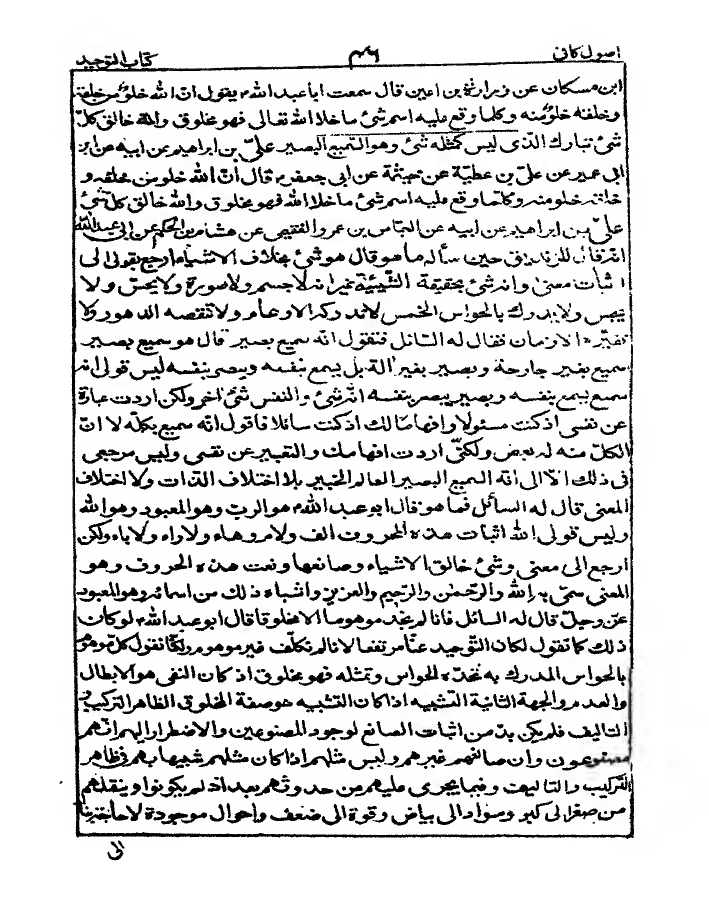 اصول كافى ٤٦ كتاب التوحيد
ابن مسكان عن زرارة بن اعين قال سمعت ابا عبد الله ع يقول ان الله خلو من خلقه
و خلقه خلو منه و كلما وقع عليه اسم شئ ما خلا الله تعالى فهو مخلوق والله خالق كل
شئ تبارك الذى ليس كمثله شئ وهو السميع البصير علىّ بن ابراهيم عن ابيه عن ابن
ابى عمير عن على بن عطية عن خيثمة عن ابى جعفر ع قال ان الله خلو من خلقه و
خلقه خلو منه و كلما وقع عليه اسم شئ ما خلا الله فهو مخلوق والله خالق كل شئ
علىّ بن ابراهيم عن ابيه عن العباس بن عمرو الفقيمى عن هشام بن الحكم عن ابى عبد الله
انه قال للزنديق حين سأله ما هو قال هو شئ بخلاف الاشياء ارجع بقولى الى
اثبات معنى وانه شئ بحقيقة الشيئية غير انه لا جسم ولا صورة ولا يحس ولا
يجس ولا يدرك بالحواس الخمس لا تدركه الاوهام ولا تنقصه الدهور ولا
تغيره الازمان فقال له السائل فتقول انه سميع بصير قال هو سميع بصير
سميع بغير جارحة وبصير بغير الة بل يسمع بنفسه ويبصر بنفسه ليس قولى انه
سميع يسمع بنفسه وبصير يبصر بنفسه انه شئ والنفس شئ اخر ولكن اردت عبارة
عن نفسى اذ كنت مسئولا وافهاما لك اذ كنت سائلا فاقول انه سميع بكله لا ان
الكل منه له بعض ولكنى اردت افهامك والتعبير عن نفسى وليس مرجعى
فى ذلك الا الى انه السميع البصير العالم الخبير بلا اختلاف الذات ولا اختلاف
المعنى قال له السائل فما هو قال ابو عبد الله ع هو الرب وهو المعبود وهو الله
وليس قولى الله اثبات هذه الحروف الف ولام وهاء ولا راء ولا باء ولكن
ارجع الى معنى وشئ خالق الاشياء وصانعها ونعت هذه الحروف وهو
المعنى سمى به الله والرحمن والرحيم والعزيز واشباه ذلك من اسمائه وهو المعبود
عز وجل قال له السائل فانا لم نجد موهوما الا مخلوقا قال ابو عبد الله ع لو كان
ذلك كما تقول لكان التوحيد عنا مرتفعا لانا لم نكلف غير موهوم ولكنا نقول كل موهوم
بالحواس المدرك به تحده الحواس وتمثله فهو مخلوق اذ كان النفى هو الابطال
والعدم والجهة الثانية التشبيه اذ كان التشبيه هو صفة المخلوق الظاهر التركيب و
التاليف فلم يكن بد من اثبات الصانع لوجود المصنوعين والاضطرار اليهم انهم
مصنوعون وان صانعهم غيرهم وليس مثلهم اذ كان مثلهم شبيها بهم فى ظاهر
التركيب والتاليف وفيما يجرى عليهم من حدوثهم بعد اذ لم يكونوا وتنقلهم
من صغر الى كبر وسواد الى بياض وقوة الى ضعف واحوال موجودة لا حاجة بنا
الى